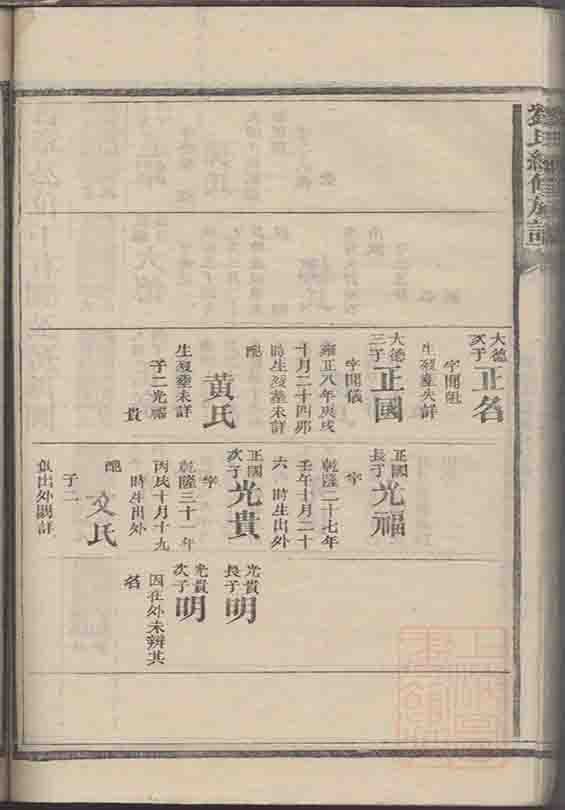 劉氏續修族譜
大德
次子
正名
字開祖
生歿塟失詳
大德
三子
正國
字開儀
雍正八年庚戌
十月二十四卯
時生歿塟未詳
配
黃氏
生歿塟未詳
子二光福
貴
正國
長子
光福
字
乾隆二十七年
壬午十月二十
六 時生出外
正國
次子
光貴
字
乾隆三十一年
丙戌十月十九
時生出外
配
文氏
子二
俱出外闕詳
光貴
長子
明
光貴
次子
明
因在外未辨其
名